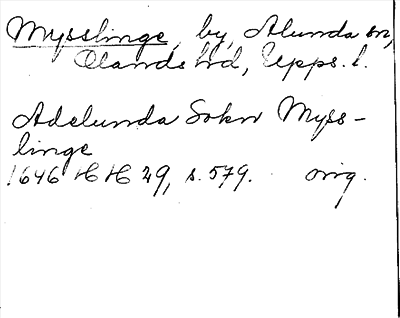 Mysslinge, by, Alunda sn,
Olands hd, Upps. l.
Adelunda Sokn Myss-
linge
1646 HH 29, s. 579. orig.